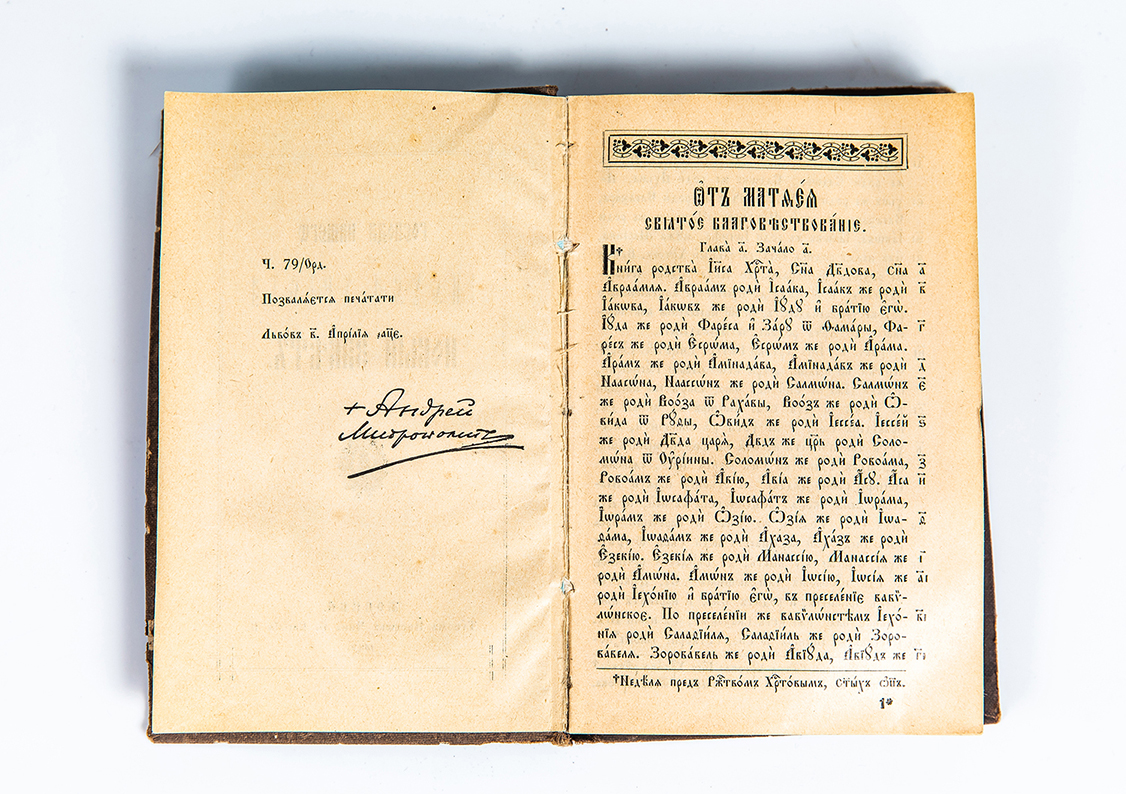 Ч. 79/Орд.
Позваля́ется печа́тати
Льво́въ к҃. А҆прі́лїѧ ҂аце.
+ Андрей
Митрополитъ
Ѿ МАТѲЕ́Ѧ
СВѦТО́Е БЛАГОВѢСТВОВА́НЇЕ.
Глава̀ а҃. Зача́ло а҃.
Кни́га родства̀ І҆и҃са Хр҃та̀, Сн҃а Дв҃дова, сн҃а а҃
А҆враа́млѧ. А҆враа́мъ родѝ І҆саа́ка, І҆саа́къ же родѝ в҃
І҆а́кѡва, І҆а́кѡвъ же родѝ І҆ꙋ́дꙋ и҆ бра́тїю є҆гѡ̀.
І҆ꙋ́да же родѝ Фаре́са и҆ За́рꙋ ѿ Ѳама́ры, Фа- г҃
ре́съ же родѝ Е҆срѡ́ма, Е҆срѡ́мъ же родѝ А҆ра́ма.
А҆ра́мъ же родѝ А҆мїнада́ва, А҆мїнада́въ же родѝ д҃
Наасѡ́на, Наассѡ́нъ же родѝ Салмѡ́на. Салмѡ́нъ є҃
же родѝ Воо́за ѿ Раха́вы, Воо́зъ же родѝ Ѡ҆-
ви́да ѿ Рꙋ́ѳы, Ѡ҆ви́дъ же родѝ І҆ессе́а. І҆ессе́й ѕ҃
же родѝ Дв҃да царѧ̀, Дв҃дъ же цр҃ь родѝ Соло-
мѡ́на ѿ Оу҆рі́ины. Соломѡ́нъ же родѝ Ровоа́ма, з҃
Ровоа́мъ же родѝ А҆ві́ю, А҆ві́а же родѝ А҆́сꙋ. А҆́са и҃
же родѝ І҆ѡсафа́та, І҆ѡсафа́тъ же родѝ І҆ѡра́ма,
І҆ѡра́мъ же родѝ Ѡ҆зі́ю. Ѡ҆зі́ѧ же родѝ І҆ѡа- ѳ҃
ѳа́ма, І҆ѡаѳа́мъ же родѝ А҆ха́за, А҆ха́зъ же родѝ
Е҆зекі́ю. Е҆зекі́ѧ же родѝ Манассі́ю, Манассі́ѧ же і҃
родѝ А҆мѡ́на. А҆мѡ́нъ же родѝ І҆ѡсі́ю, І҆ѡсі́ѧ же а҃і
родѝ І҆ехо́нїю и҆ бра́тїю є҆гѡ̀, въ преселе́нїе вавѷ-
лѡ́нское. По преселе́нїи же вавѷлѡ́нстѣмъ І҆ехо́- в҃і
нїѧ родѝ Салаѳїи́лѧ, Салаѳїи́ль же родѝ Зоро-
ва́велѧ. Зорова́вель же родѝ А҆вїꙋ́да, А҆вїꙋ́дъ же г҃і
†Недѣ́лѧ предъ Рж҃тво́мъ Хр҃то́вымъ, ст҃ы́хъ ѻ҆ц҃ъ.
1*